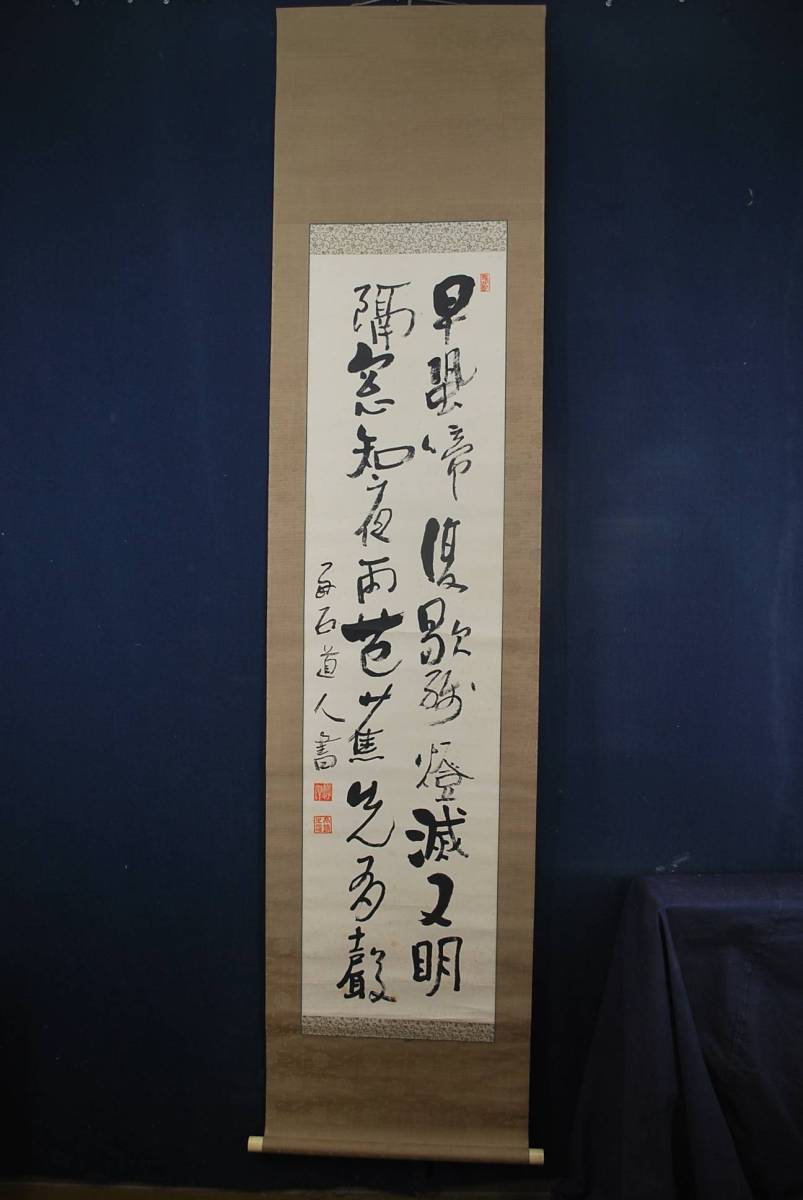 早蛩啼復歇殘燈滅又明
隔窓知夜雨芭蕉先有聲
石道人書